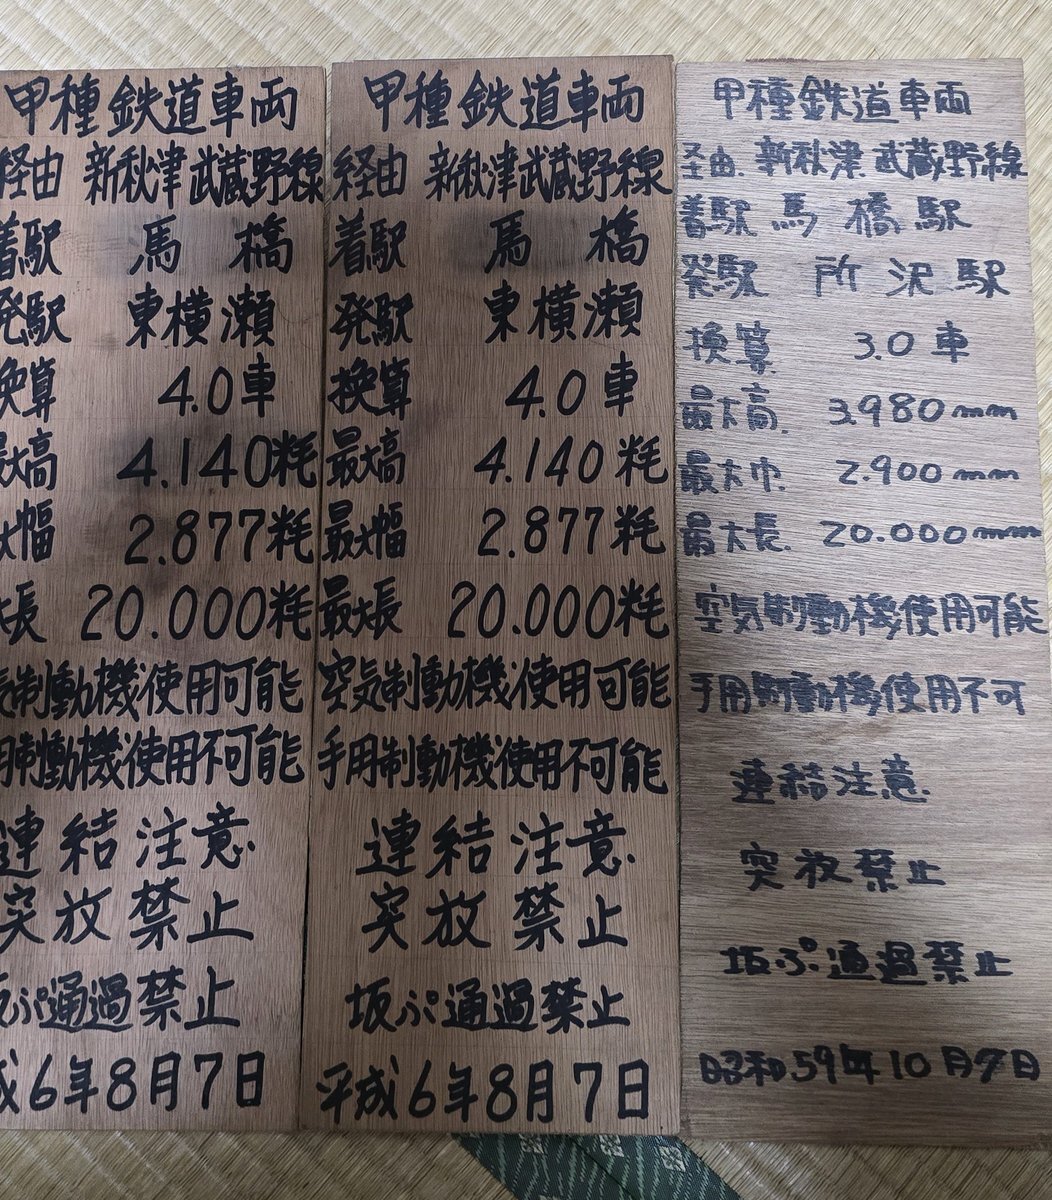 甲種鉄道車両
経由 新秋津武蔵野線
着駅 馬橋
発駅 東横瀬
換算 4.0車
最大高 4.140粍
大幅 2.877粍
大長 20.000粍
気制動機使用可能
用制動機使用不可能
連結注意
突放禁止
坂ぷ通過禁止
成6年8月7日
甲種鉄道車両
経由 新秋津武蔵野線
着駅 馬橋
発駅 東横瀬
換算 4.0車
最大高 4.140粍
最大幅 2.877粍
最大長 20.000粍
空気制動機使用可能
手用制動機使用不可能
連結注意
突放禁止
坂ぷ通過禁止
平成6年8月7日
甲種鉄道車両
経由 新秋津 武蔵野線
着駅 馬橋駅
発駅 所沢駅
換算 3.0車
最大高 3.980mm
最大巾 2.900mm
最大長 20.000mm
空気制動機使用可能
手用制動機使用不可
連結注意
突放禁止
坂ぷ通過禁止
昭和59年10月7日